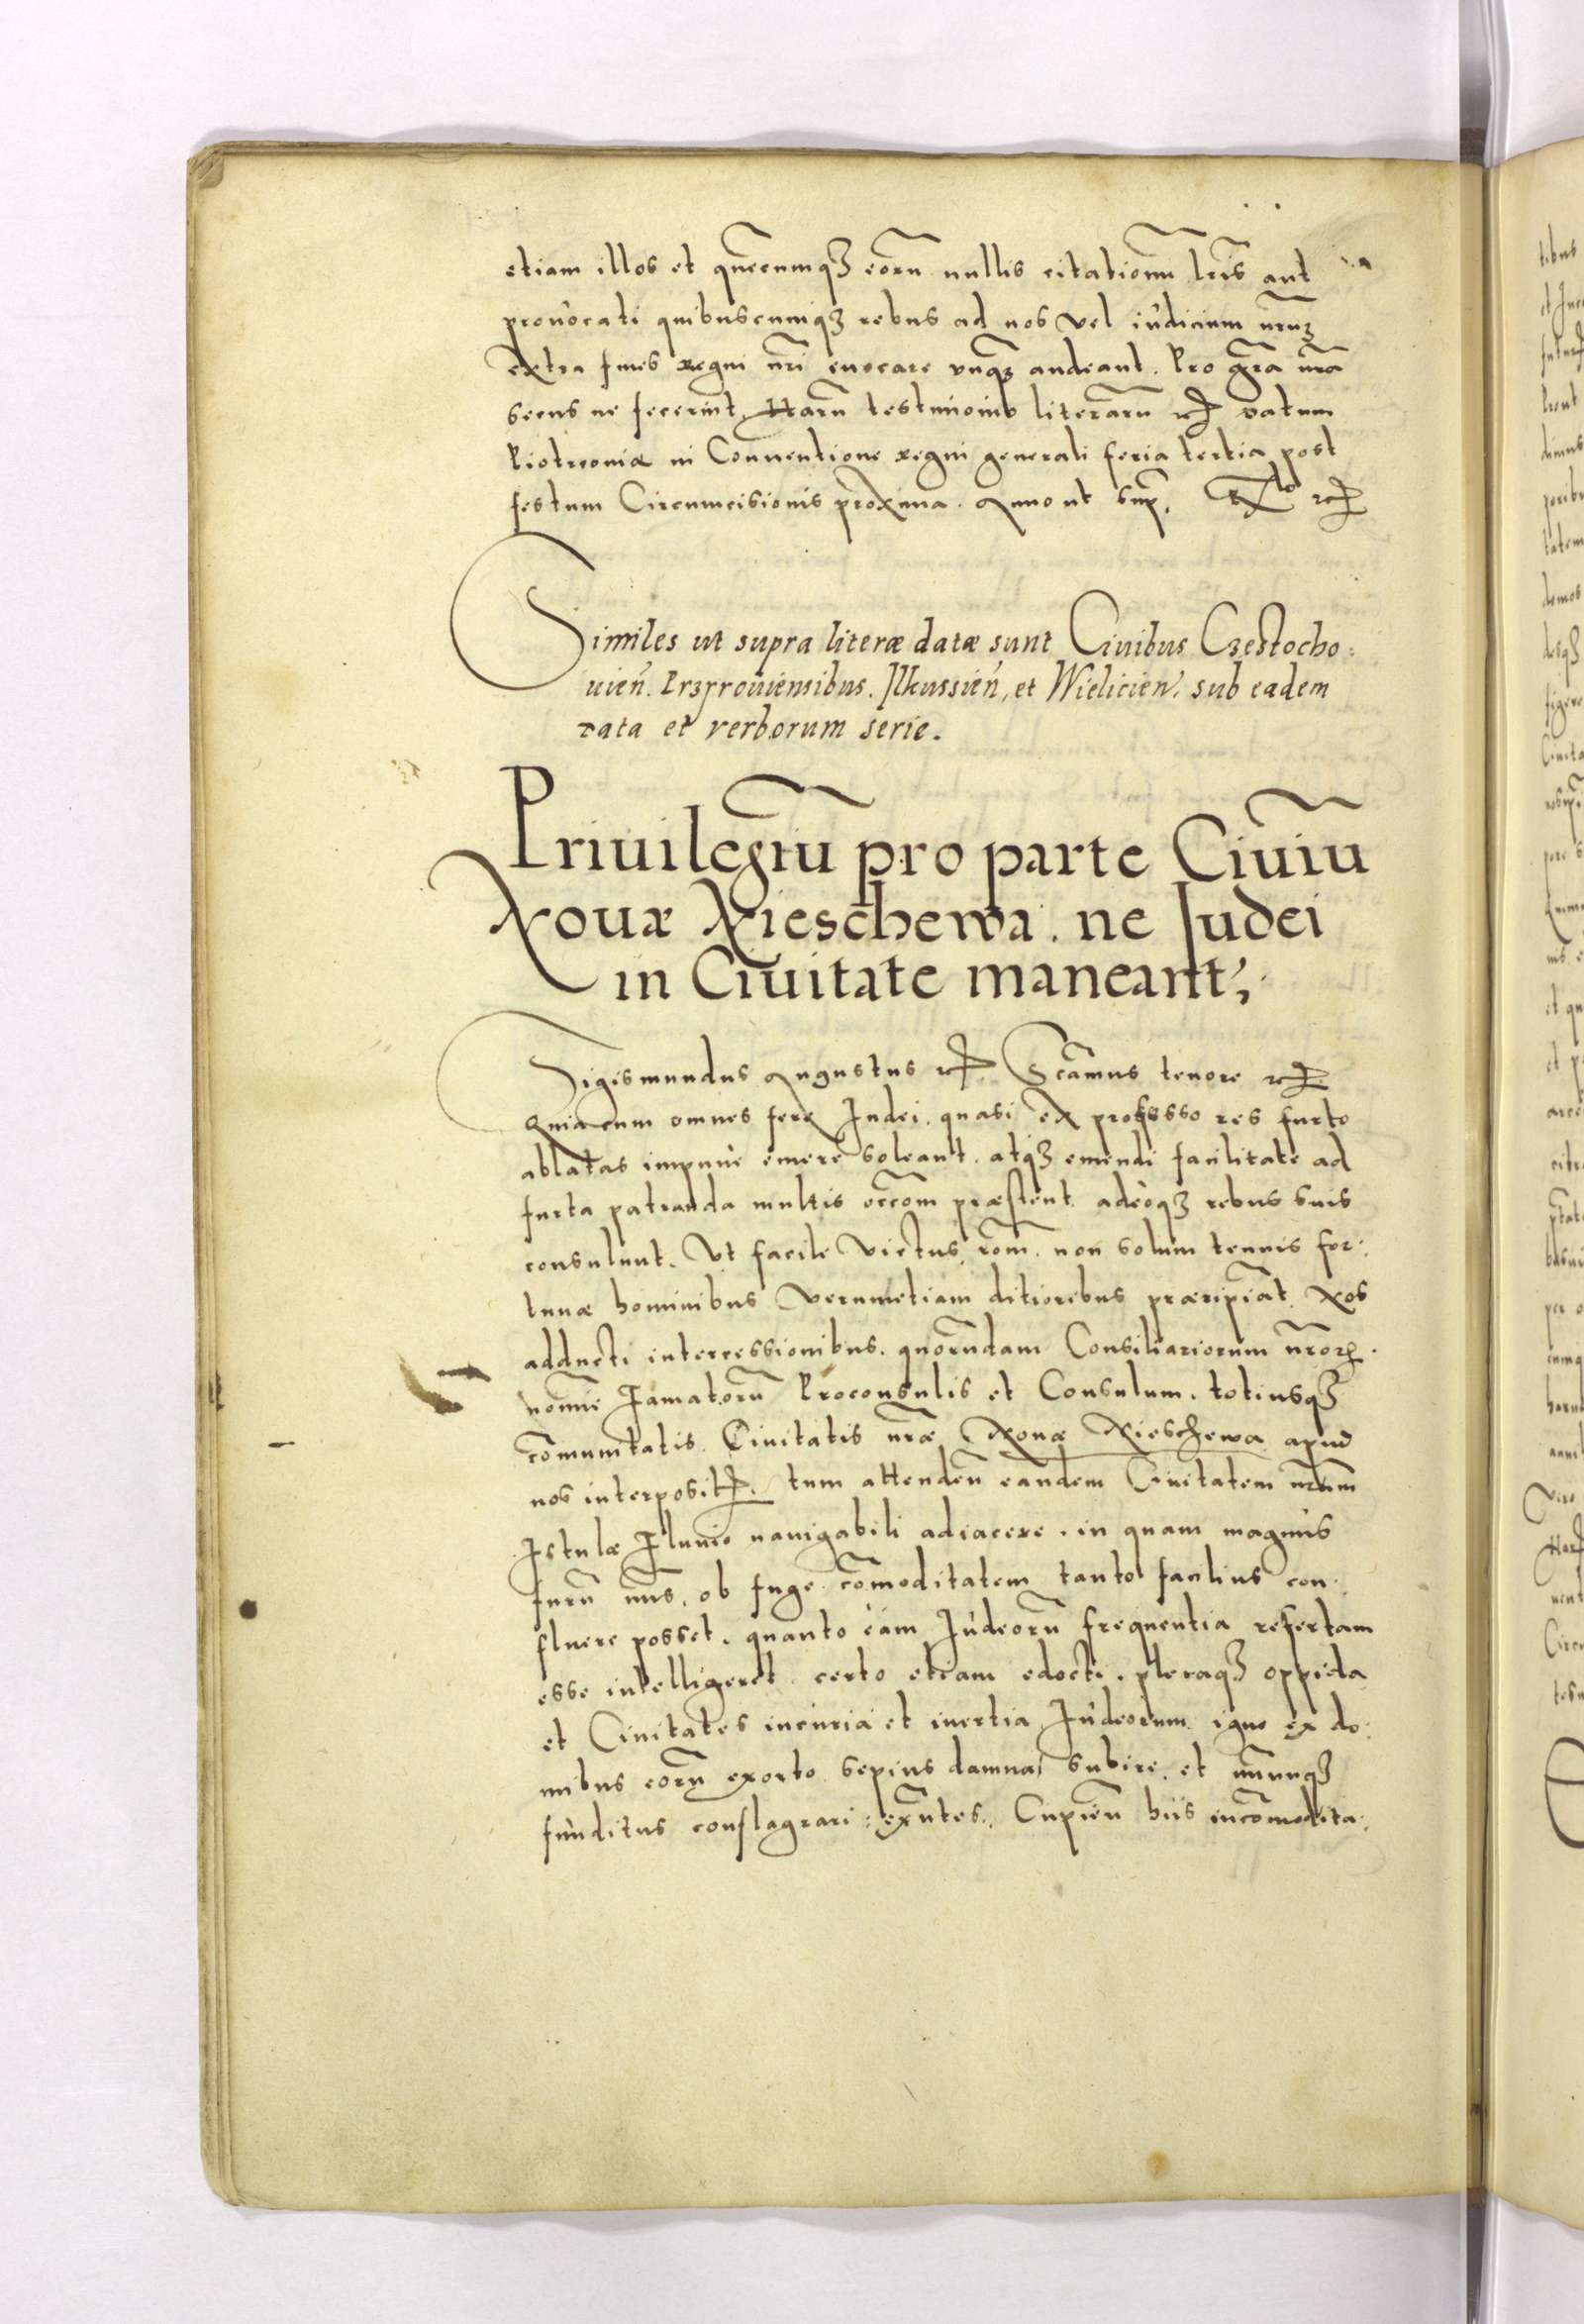 etiam illos et quēcumqȝ eorū nullis citationū lrīs aut
prouocati quibuscumqȝ rebus ad nos vel iudicium nrūȝ
extra fines regni nrī euocare vnqȝ audeant. Pro grā nrā
secus ne fecerint. Harū testimonio literarū etc datum
Piotrcouiæ in Conuentione regni generali feria tertia post
festum Circumcisionis proxima. Anno ut sup. etc
Similes ut supra literæ datæ sunt Ciuibus Czestocho:
uien̄. Przyrouiensibus. Ilkussien̄, et Wielicien̄. sub eadem
data et verborum serie.
Priuilegiū pro parte Ciuiū
Nouæ Nieschewa. ne Judei
in Ciuitate maneant;
Sigismundus Augustus etc. Scāmus tenore etc
Quia cum omnes fere Judei. quasi ex professo res furto
ablatas impune emere soleant. atqȝ emendi facilitate ad
furta patranda multis occōm præstent. adeoqȝ rebus suis
consulunt. Vt facile victus rōm. non solum tenuis for:
tunæ hominibus verumetiam ditioribus præripiāt. Nos
adducti intercessionibus. quorundam Consiliariorum nrōrȝ.
nomīe Famatorū Proconsulis et Consulum. totiusqȝ
cōmunitatis Ciuitatis nræ Nouæ Nieschewa apud
nos interposit. tum attendeñ eandem Ciuitatem nrām
Istulæ Fluuio nauigabili adiacere. in quam magnus
furū nūs. ob fuge cōmoditatem tanto facilius con:
fluere posset. quanto eam Judeorū frequentia refertam
esse intelligeret. certo etiam edocti. pleraqȝ oppida
et Ciuitates incuria et inertia Judeorum igne ex do:
mibus eorū exorto sepius damna subire. et nōnnunqȝ
funditus conflagrari: exn̄tes. Cupien̄ hiis incōmodita: